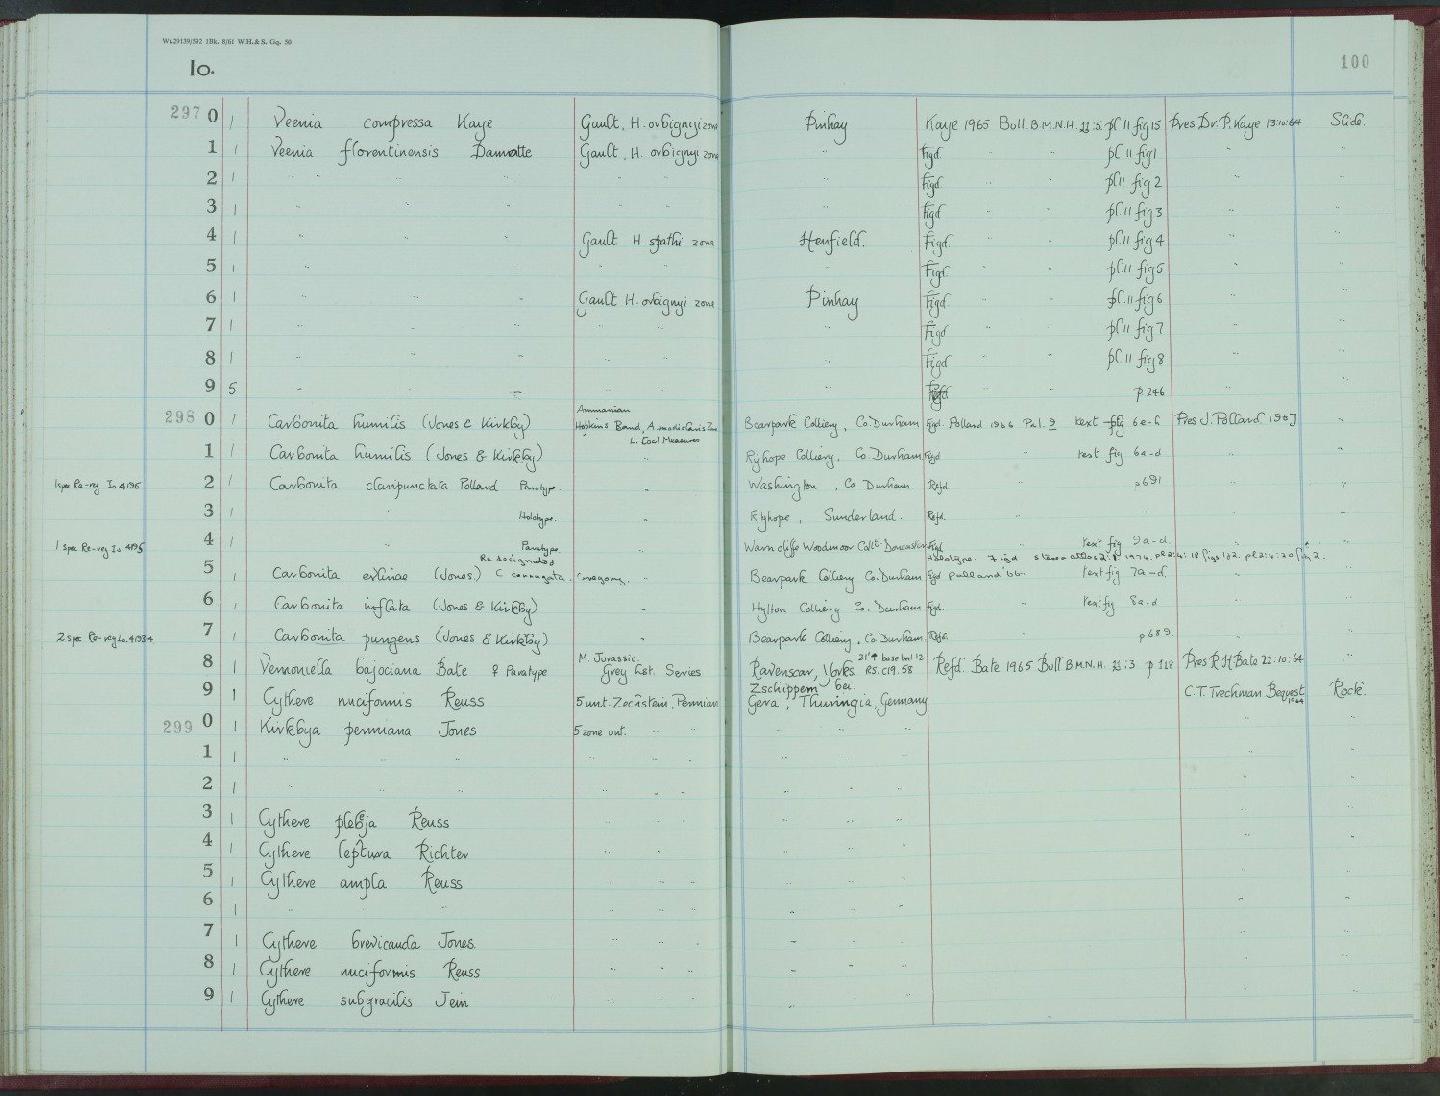 Wt.29139/592 1Bk. 8/61 W.H.& S. Gq. 50
Io. 100
297 0 1 Veenia compressa Kaye Gault, H. orbignyi zone Pinhay Kaye 1965 Bull. B.M.N.H. 11:5. pl 11 fig 15 Pres Dr. P. Kaye 13:10:64 Slide.
1 1 Veenia florentinensis Damotte Gault, H. orbignyi zone " Figd. pl 11 fig 1 " "
2 1 " " " " " " Figd " " pl 11 fig 2 " "
3 1 " " " " " " Figd " " pl 11 fig 3 " "
4 1 " " " Gault H spathi zone Henfield. Figd. " " pl. 11 fig 4 " "
5 1 " " " " " Figd. " " pl. 11 fig 5 " "
6 1 " " " Gault H. orbignyi zone Pinhay Figd. " " pl. 11 fig 6 " "
7 1 " " " " " " Figd " " pl 11 fig 7 " "
8 1 " " " " " " Figd " " pl. 11 fig 8 " "
9 5 " " " " " Refd " " p 246 " "
Ammanian
298 0 1 Carbonita humilis (Jones & Kirkby) Hopkins Band, A. modiolaris Zone Bearpark Colliery, Co. Durham Figd. Pollard 1966 Pal. 9 text fig 6e-h Pres J. Pollard 1965 "
L. Coal Measures
1 1 Carbonita humilis (Jones & Kirkby) " Ryhope Colliery, Co. Durham Figd " text fig 6a-d " "
1 spec Re-reg Io 4196 2 1 Carbonita claripunctata Pollard Paratype. " Washington, Co Durham Refd. " p691 " "
3 1 " Holotype. " Ryhope, Sunderland. Refd. " "
1 spec Re-reg Io 4195 4 1 " Paratype. " Warncliffe Woodmoor Coll. Doncaster Figd text fig 9a-d. "
Re designated Holotype. Figd 1974.
5 1 Carbonita evelinae (Jones.) C " Bearpark Colliery Co. Durham Figd Pollard '66 text fig 7a-d. " "
6 1 Carbonita inflata (Jones & Kirkby) " Hylton Colliery Co. Durham Figd. " text fig 8a-d " "
2 spec Re-reg Io. 4193-4 7 1 Carbonita pungens (Jones & Kirkby) " Bearpark Colliery, Co. Durham. Refd. p689. " "
M. Jurassic. 21'↑ base bed 12
8 1 Vernoniella bajociana Bate ♀ Paratype Grey Lst. Series Ravenscar, Yorks RS.C19.58 Refd. Bate 1965 Bull B.M.N.H. 11:3 p 118 Pres R H Bate 22:10:64 "
Zschippern bei
9 1 Cythere nuciformis Reuss 5 unt. Zechstein, Permian Gera, Thuringia, Germany C.T. Trechman Bequest 1964 Rock.
299 0 1 Kirkbya permiana Jones 5 zone unt. " " " " " "
1 1 " " " " " " " " "
2 1 " " " " " " " " "
3 1 Cythere plebja Reuss " " " " " " "
4 1 Cythere leptura Richter " " " " " " "
5 1 Cythere ampla Reuss " " " " " "
6 1 " " " " " " " " "
7 1 Cythere brevicauda Jones. " " " " " " "
8 1 Cythere nuciformis Reuss " " " " " " "
9 1 Cythere subgracilis Jein " " " " "